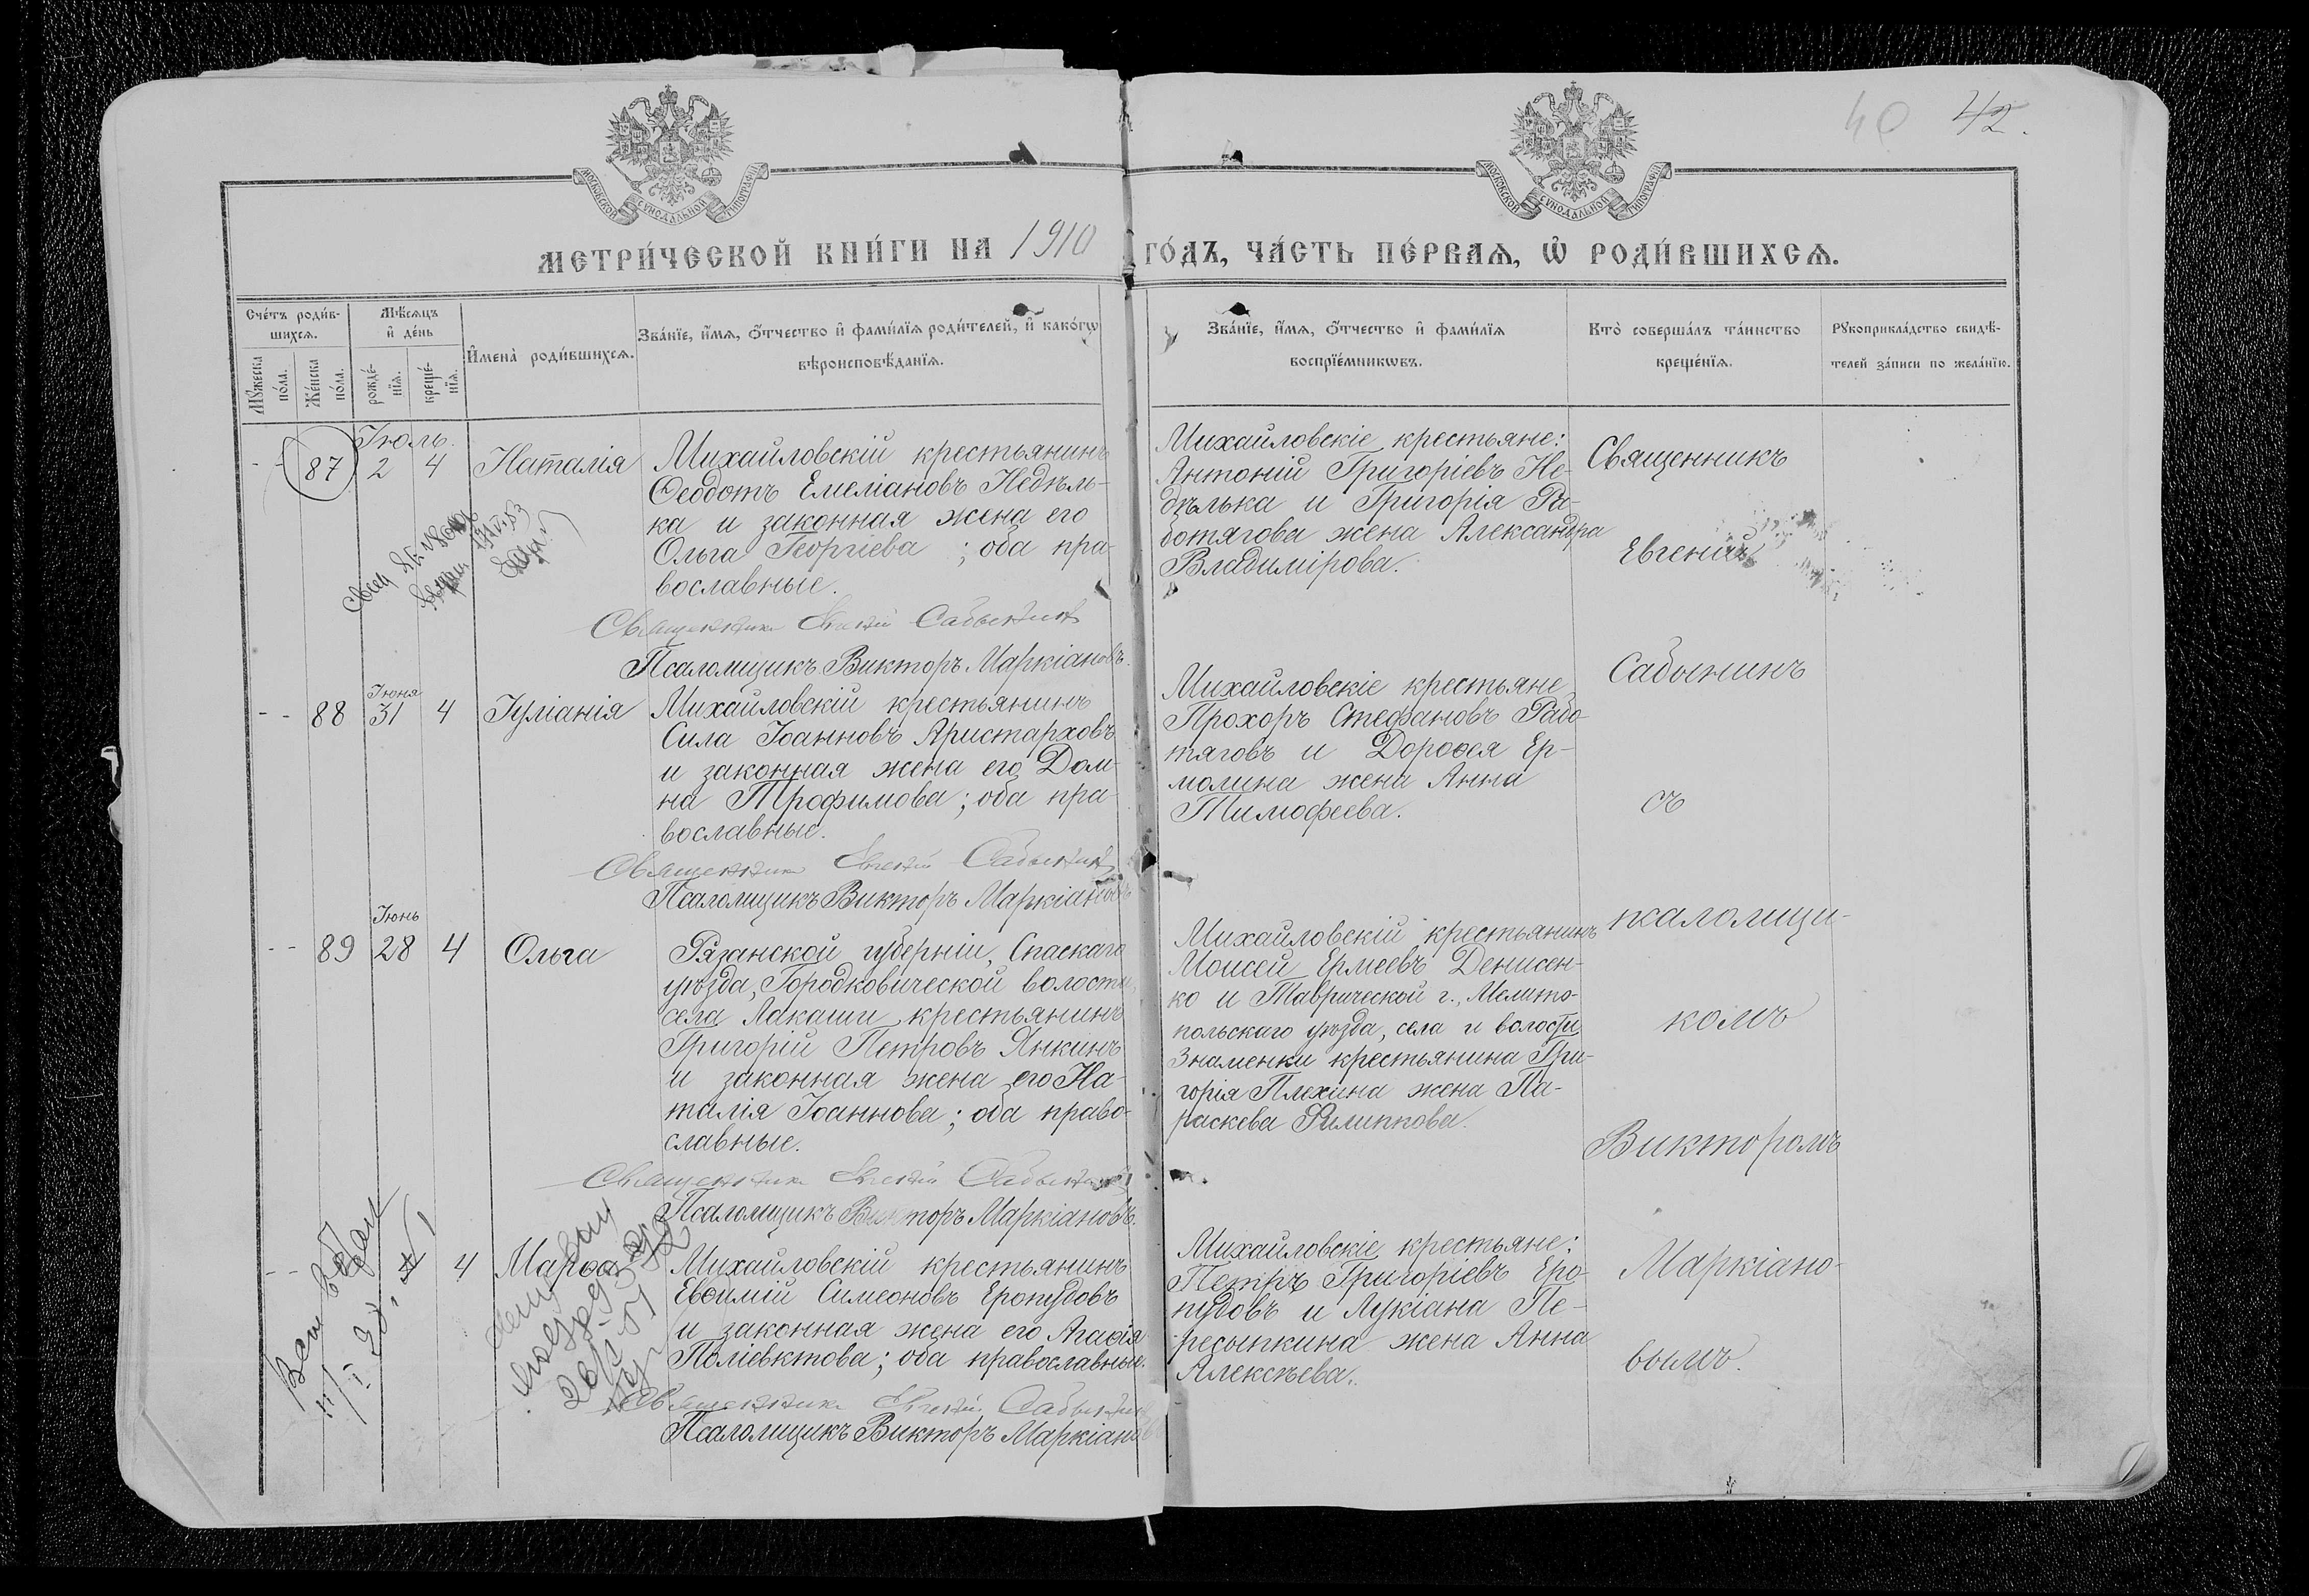 40 42.
МОСКОВСКОЙ СѴНОДАЛЬНОЙ ТИПОГРАФІИ
МОСКОВСКОЙ СѴНОДАЛЬНОЙ ТИПОГРАФІИ
МЕТРИ́ЧЕСКОЙ КНИ́ГИ НА 1910 ГО́ДЪ, ЧА́СТЬ ПЕ́РВАѦ, Ѡ҆ РОДИ́ВШИХСѦ.
Сче́тъ роди́в-
шихсѧ.
Мꙋ́жеска
по́ла.
Же́нска
по́ла.
Мѣ́сѧцъ
и҆ де́нь
рожде́-
нїѧ.
креще́-
нїѧ.
И҆мена̀ роди́вшихсѧ.
Зва́нїе, и҆́мѧ, ѻ҆́тчество и҆ фами́лїѧ роди́телей, и҆ како́гѡ
вѣроисповѣ́данїѧ.
Зва́нїе, и҆́мѧ, ѻ҆́тчество и҆ фами́лїѧ
воспрїе́мникѡвъ.
Кто̀ соверша́лъ та́инство
креще́нїѧ.
Рꙋкоприкла́дство свидѣ́-
телей за́писи по жела́нїю.
Іюль.
- - 87 2 4 Наталія
Михайловскій крестьянинъ
Ѳеодотъ Емеліановъ Недѣль-
ка и законная жена его
Ольга Георгіева ; оба пра-
вославные.
Священникъ Евгеній Сабынинъ
Псаломщикъ Викторъ Маркіановъ.
Михайловскіе крестьяне:
Антоній Григоріевъ Не-
дѣлька и Григорія Ра-
ботягова жена Александра
Владимірова.
Іюня
- - 88 31 4 Іуліанія
Михайловскій крестьянинъ
Сила Іоанновъ Аристарховъ
и законная жена его Дом-
на Трофимова; оба пра-
вославные.
Священникъ Евгеній Сабынинъ
Псаломщикъ Викторъ Маркіановъ
Михайловскіе крестьяне
Прохоръ Стефановъ Рабо-
тяговъ и Дороѳея Ер-
молина жена Анна
Тимофеева.
Іюнь
- - 89 28 4 Ольга
Рязанской губерніи, Спаскаго
уѣзда, Городковической волости,
села Лакаши крестьянинъ
Григорій Петровъ Янкинъ
и законная жена его На-
талія Іоаннова; оба право-
славные.
Священникъ Евгеній Сабынинъ
Псаломщикъ Викторъ Маркіановъ.
Михайловскій крестьянинъ
Моисей Ермеевъ Денисен-
ко и Таврической г., Мелито-
польскаго уѣзда, села и волости
Знаменки крестьянина Гри-
горія Плехина жена Па-
раскева Филиппова.
- - 4 Марѳа
Михайловскій крестьянинъ
Евѳимій Симеоновъ Еропудовъ
и законная жена его Агаѳія
Поліевктова; оба православные.
Священникъ Евгеній Сабынинъ
Псаломщикъ Викторъ Маркіановъ
Михайловскіе крестьяне:
Петръ Григоріевъ Еро-
пудовъ и Лукіана Пе-
ресыпкина жена Анна
Алексѣева.
Священникъ
Евгеній
Сабынинъ
съ
псаломщи-
комъ
Викторомъ
Маркіано-
вымъ.